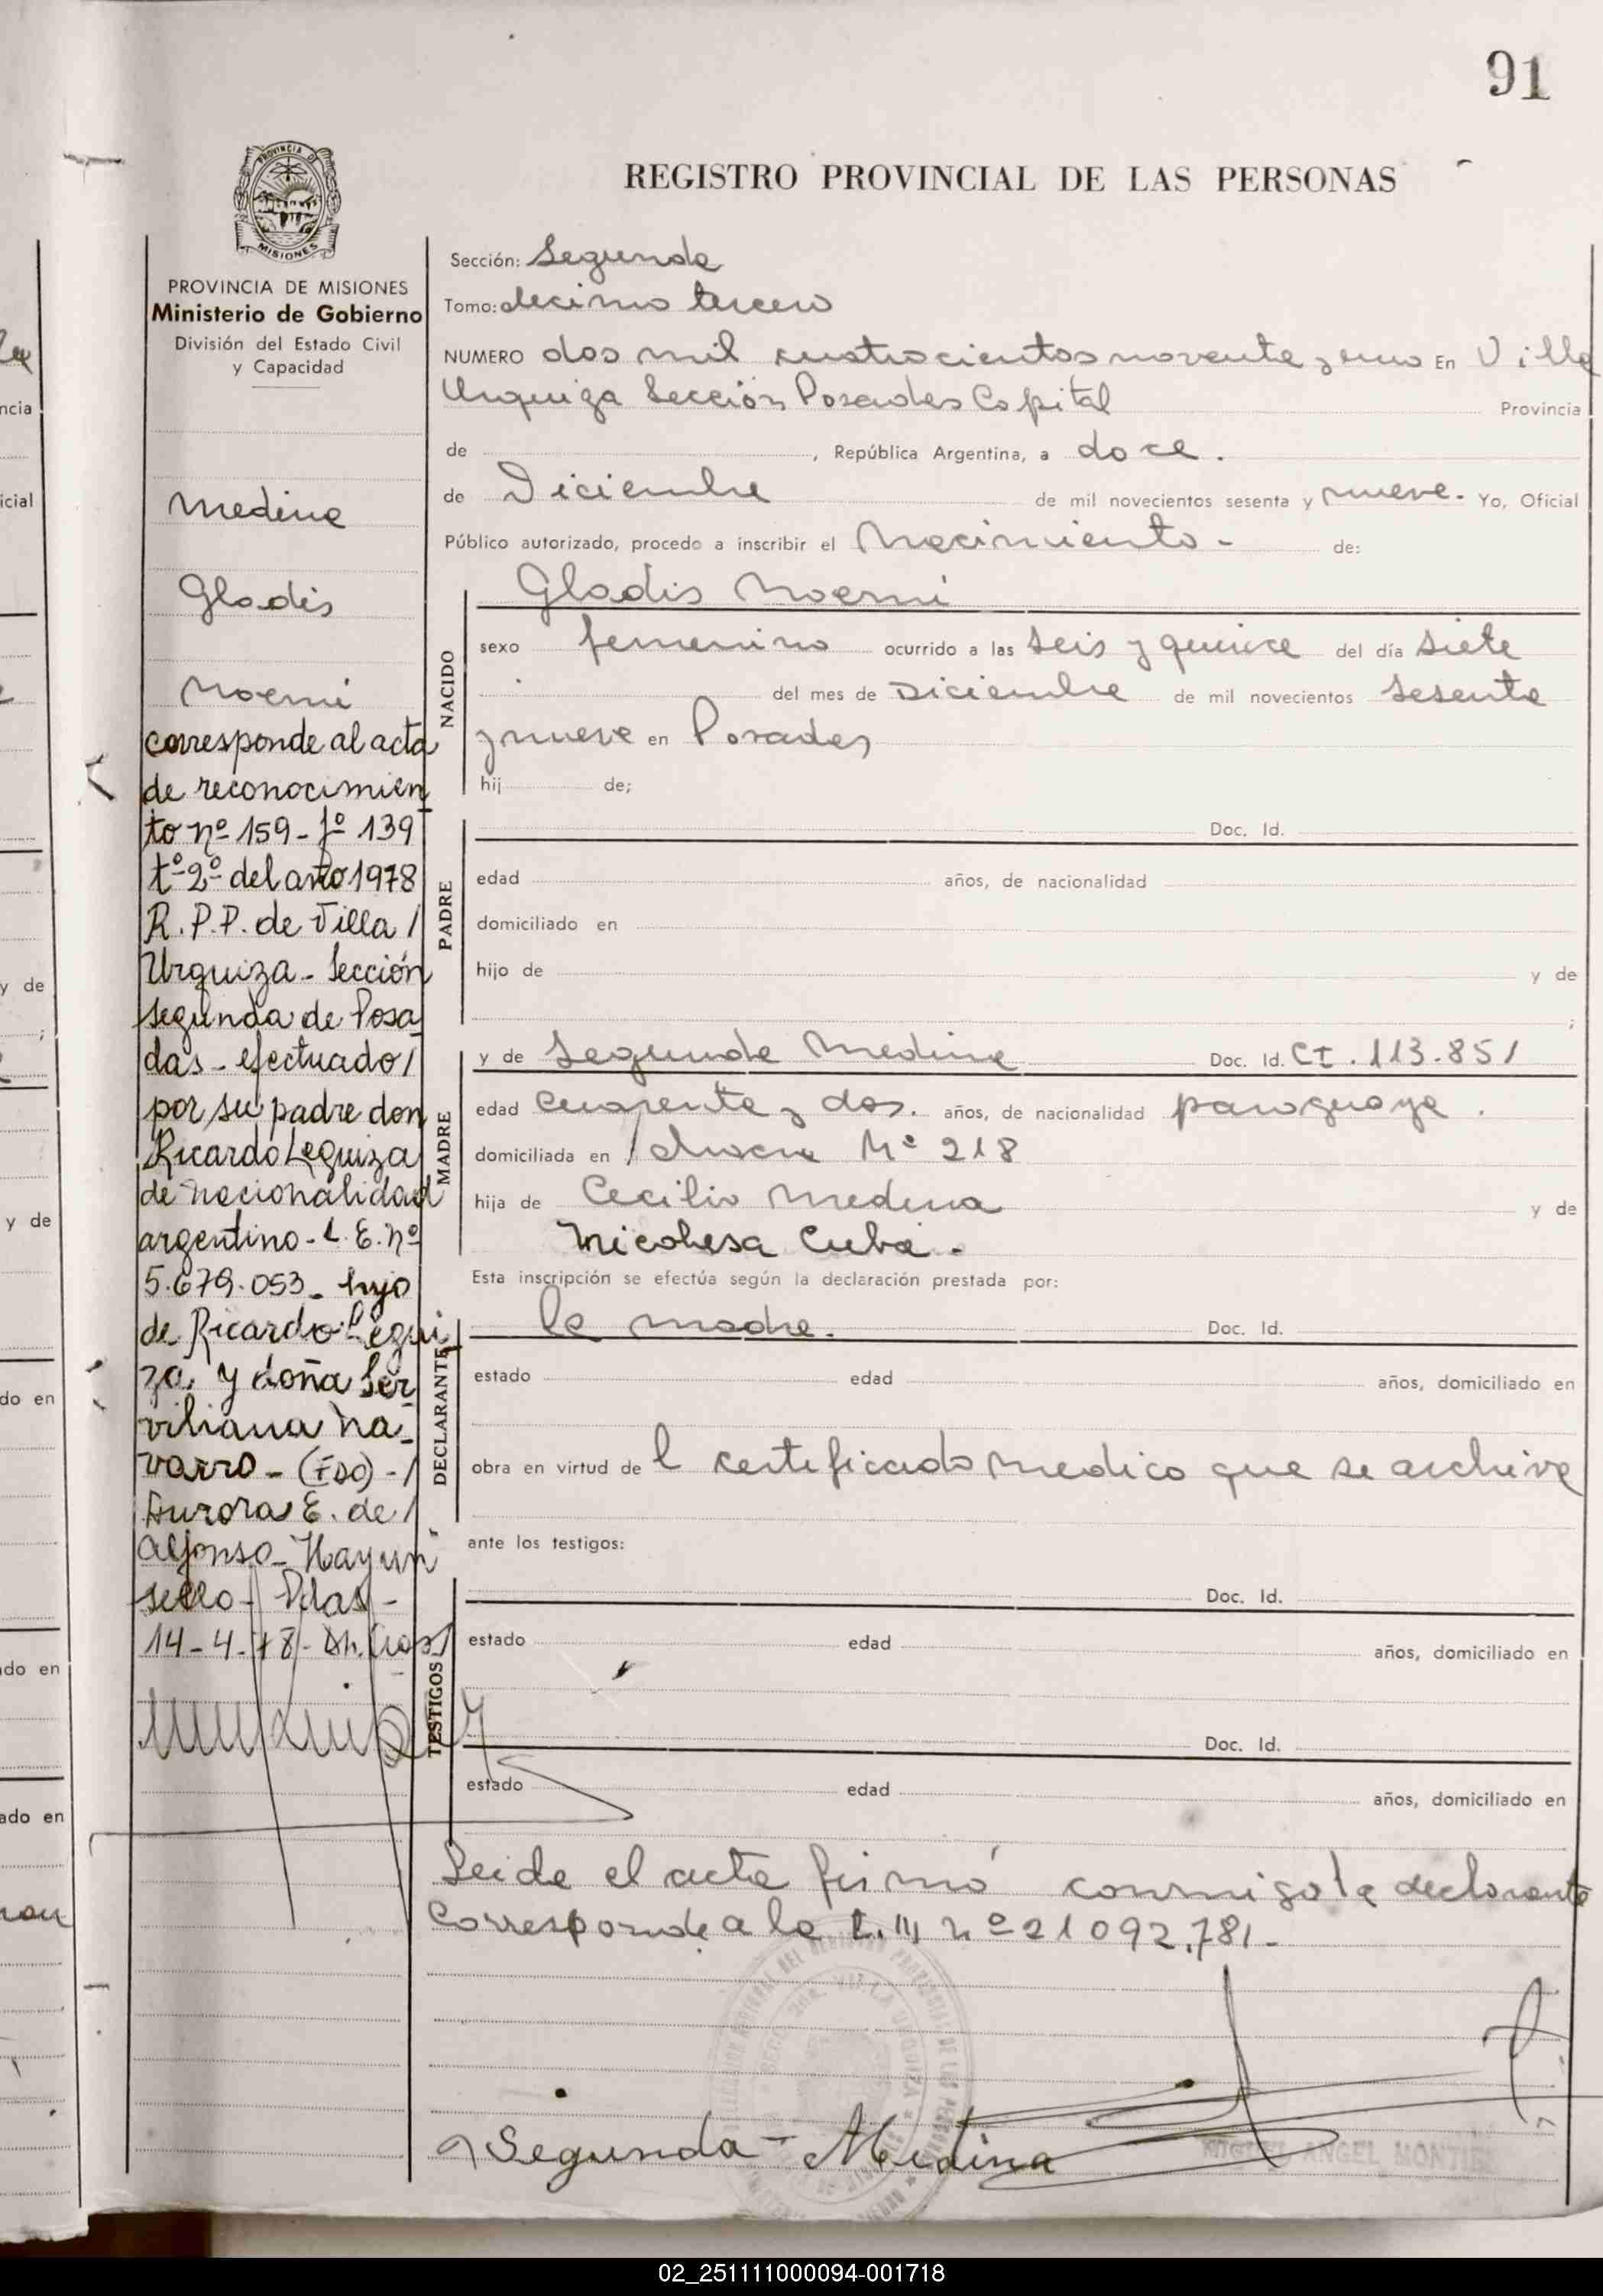 91
REGISTRO PROVINCIAL DE LAS PERSONAS
PROVINCIA DE MISIONES
Ministerio de Gobierno
División del Estado Civil
y Capacidad
Medina
Gladis
Noemi
corresponde al acta
de reconocimien
to nº 159 - fº 139
tº 2º del año 1978
R.P.P. de Villa /
Urquiza - Sección
segunda de Posa
das - efectuado /
por su padre don
Ricardo Leguiza
de nacionalidad
argentino - L.E. nº
5.679.053 - hijo
de Ricardo Legui
za y doña Ser
viliana Na
varro - (FDO) - /
Aurora E. de /
Alfonso - Hay un
sello - Pdas -
14-4-78 -
Sección: Segunda
Tomo: decimo tercero
NUMERO dos mil cuatrocientos noventa y uno En Villa
Urquiza Sección Posadas Capital Provincia
de , República Argentina, a doce.
de Diciembre de mil novecientos sesenta y nueve. Yo, Oficial
Público autorizado, procedo a inscribir el Nacimiento - de:
NACIDO
Gladis Noemi
sexo femenino ocurrido a las seis y quince del día siete
del mes de Diciembre de mil novecientos sesenta
y nueve en Posadas
hij de;
PADRE
Doc. Id.
edad años, de nacionalidad
domiciliado en
hijo de y de
;
MADRE
y de Segunda Medina Doc. Id. CI. 113.851
edad cuarenta y dos. años, de nacionalidad paraguaya.
domiciliada en Nº 218
hija de Cecilio Medina y de
Nicolasa Cuba.
Esta inscripción se efectúa según la declaración prestada por:
DECLARANTE
la madre. Doc. Id.
estado edad años, domiciliado en
obra en virtud de l certificado medico que se archiva
ante los testigos:
TESTIGOS
Doc. Id.
estado edad años, domiciliado en
Doc. Id.
estado edad años, domiciliado en
Leida el acta firmó conmigo la declarante
Corresponde a la nº 21092.781.-
Segunda - Medina
MIGUEL ANGEL MONTIEL
02_251111000094-001718